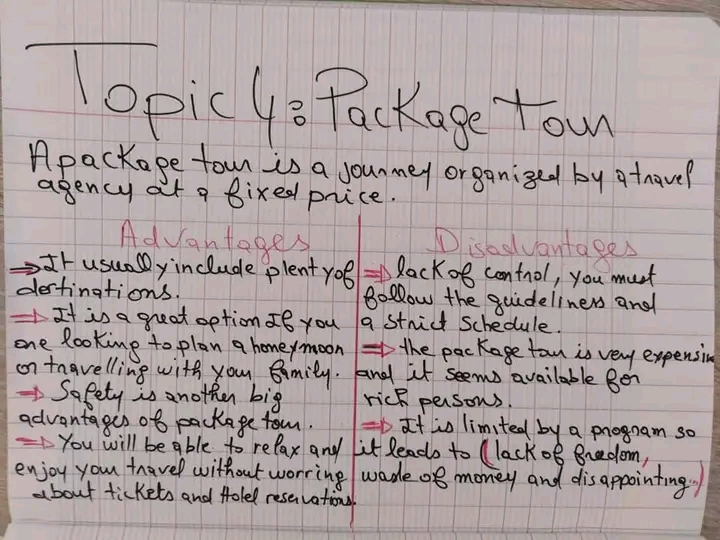 Topic 4: Package Tour
A package tour is a journey organized by a travel
agency at a fixed price.
Advantages
⇒ It usually include plenty of
dertinations.
⇒ It is a great option If you
are looking to plan a honeymoon
or travelling with your family.
⇒ Safety is another big
advantages of package tour.
⇒ You will be able to relax and
enjoy your travel without worring
about tickets and Hotel reservations.
Disadvantages
⇒ lack of control, you must
follow the guideliness and
a strict schedule.
⇒ the package tour is very expensive
and it seems available for
rich persons.
⇒ It is limited by a program so
it leads to (lack of freedom,
waste of money and disappointing..)